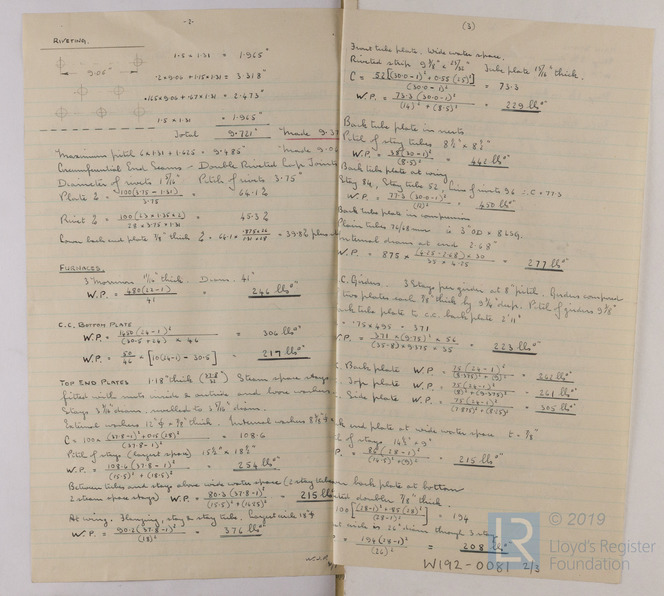 -2-
RIVETING.
1·5 x 1·31 = 1·965"
9·06"
·2 x 9·06 + 1·15 x 1·31 = 3·318"
·165 x 9·06 + ·67 x 1·31 = 2·473"
1·5 x 1·31 = 1·965"
Total 9·721" Made 9·3
Maximum pitch 6 x 1·31 + 1·625 = 9·485" Made 9·06
Circumferential End Seams - Double Riveted Lap Joints
Diameter of rivets 1 5/16" Pitch of rivets 3·75"
Plate % = 100(3·75 - 1·31) / 3·75 = 64·1%
Rivet % = 100(23 x 1·35 x 2) / 28 x 3·75 x 1·31 = 45·3%
Lower back end plate 7/8" thick
FURNACES.
3 Morrison 11/16" thick. Diam. 41"
W.P. = 480(22-1) / 41 = 246 lbs"
C.C. BOTTOM PLATE
W.P. = 1450(24-1)² / (30·5+24) x 46 = 306 lbs"
W.P. = 50/46 x [10(24-1) - 30·5] = 217 lbs"
TOP END PLATES 1·18" thick (37·8/32) Steam space stays
fitted with nuts inside & outside and loose washers.
External washers 12"ø Internal washers
C = 100 x (37·8-1)² + 0·15(28)² / (37·8-1)² = 108·6
Pitch of stays (largest space) 15½" x 18½"
W.P. = 108·6(37·8-1)² / (15·5)² + (18·5)² = 254 lbs"
Between tubes and stays above wide water space (2 stay tubes
2 steam space stays) W.P. = 80·3(37·8-1)² / (15·5)² + (14·75)² = 215 lbs
At wing. Flanging, stay & stay tube. Largest circle 18"ø
W.P. = 90·2(37·8-1)² / (18)² = 376 lbs"
(3)
Front tube plate. Wide water space.
Riveted strip 9 7/8" x 25/32" Tube plate 15/16" thick.
C = 52[(30·0-1)² + 0·55(25)²] / (30·0-1)² = 73·3
W.P. = 73·3(30·0-1)² / (14)² + (8·5)² = 229 lbs"
Back tube plate in nests
Pitch of stay tubes 8½" x 8½"
W.P. = 38(30-1)² / (8·5)² = 442 lbs"
Back tube plate at wing
Stay 84, Stay tube 52, Line of rivets 96 ∴ C = 77·3
W.P. = 77·3(30·0-1)² / (12)² = 450 lbs"
Back tube plate in compression
Plain tubes 76/68 mm is 3" OD x 8 LSG.
Internal dram at end 2·68"
W.P. = 875 x (4·25 - 2·68) x 30 / 35 x 4·25 = 277 lbs"
C.C. Girders. 3 Stays per girder at 8" pitch. Girders composed
two plates each 3/8" thick by 9¾" deep. Pitch of girders 9 3/8"
back tube plate to c.c. back plate 2'11"
= ·75 x 495 = 371
W.P. = 371 x (9·75)² x 56 / (35-8) x 9·375 x 35 = 223 lbs"
Back plate W.P. = 75(24-1)² / (8·375)² + (9)² = 261 lbs"
Top plate W.P. = 75(24-1)² / (8)² + (9·375)² = 261 lbs"
Side plate W.P. = 75(24-1)² / (7·875)² + (8·25)² = 305 lbs"
back end plate at wide water space. t = 7/8"
Pitch of stays. 14½" x 9"
W.P. = 86(28-1)² / (14·5)² + (9)² = 215 lbs"
back plate at bottom
doubler 7/8" thick.
100[(28-1)² + 85(28)²] / (28-1)² = 194
W.P. = 194(28-1)² / (26)² = 208 lbs"
© 2019
LR
Lloyd's Register
Foundation
W192-0081 2/3